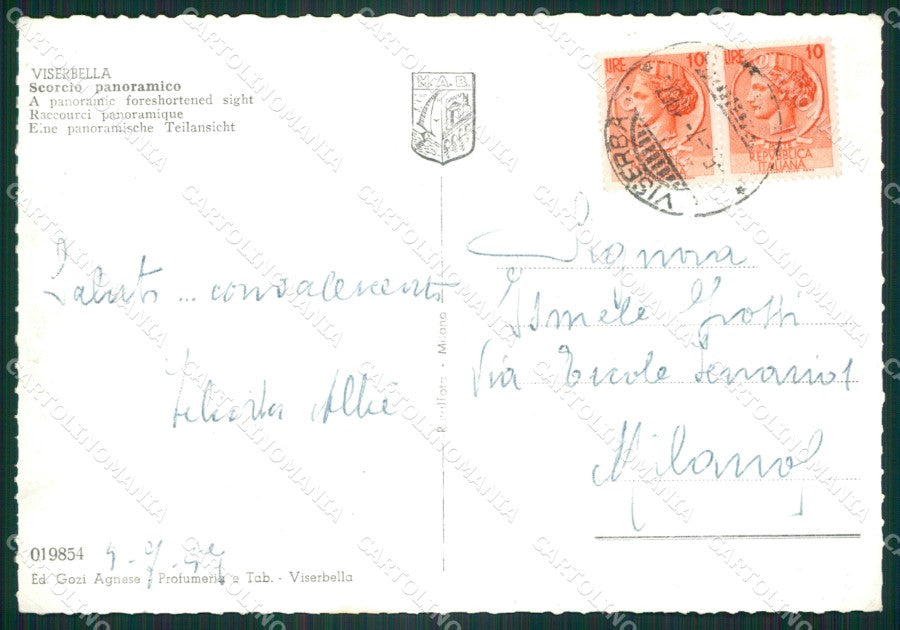 VISERBELLA
Scorcio panoramico
A panoramic foreshortened sight
Raccourci panoramique
Eine panoramische Teilansicht
M.A.B.
LIRE 10
LIRE 10
REPUBBLICA
ITALIANA
VISERBA
Saluti ... convalescenti
Signora
Ismele Grossi
Via Ercole
Milano
Milano
019854
Ed Gozi Agnese Profumeria e Tab. - Viserbella
CARTOLINOMANIA